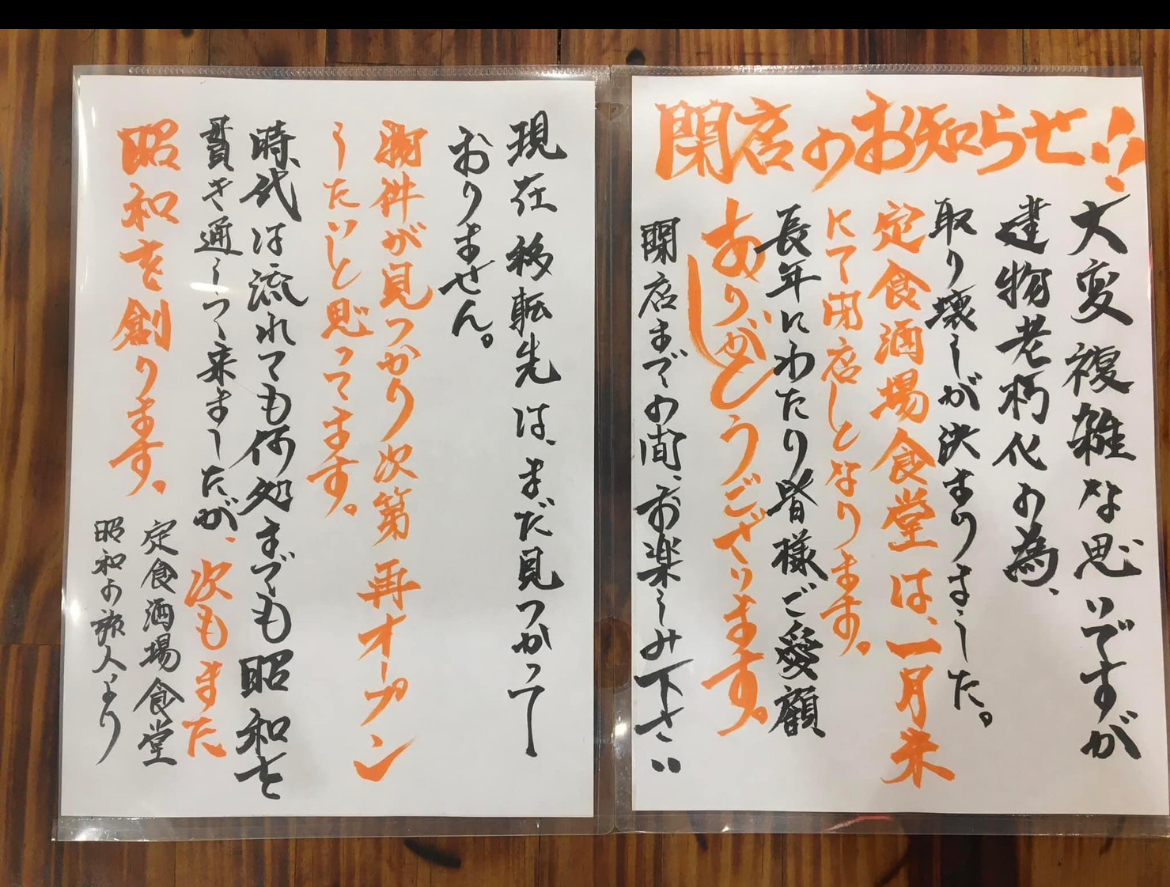 閉店のお知らせ!!
大変複雑な思いですが
建物老朽化の為、
取り壊しが決まりました。
定食酒場食堂は、一月末
にて閉店しとなります。
長年にわたり皆様ご愛顧
ありがとうございます。
閉店までの間、お楽しみ下さい
現在移転先は、まだ見つかって
おりません。
物件が見つかり次第再オープン
したいと思ってます。
時代は流れても何処までも昭和を
貫き通しつ来ましたが、次もまた
昭和を創ります。
定食酒場食堂
昭和の旅人より